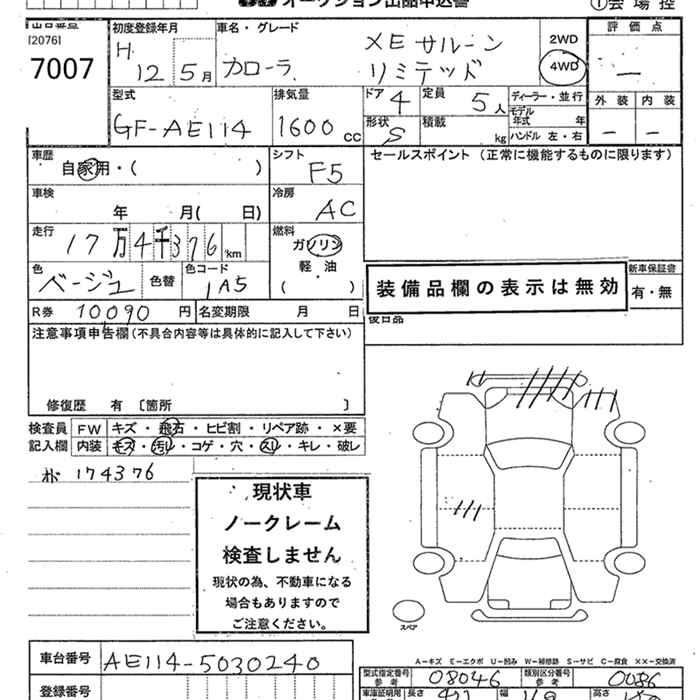 オークション出品申込書
①会場控
[2076]
7007
初度登録年月
H 12 5月
車名・グレード
カローラ
XE サルーン
リミテッド
2WD
4WD
評価点
—
外装 内装
— —
型式
GF-AE114
排気量
1600 cc
ドア 4
定員 5人
形状 S
積載 kg
ディーラー・並行
モデル年式 年
ハンドル 左・右
車歴
自家用・( )
シフト
F5
セールスポイント (正常に機能するものに限ります)
車検
年 月( 日)
冷房
AC
走行
17万4千376km
燃料
ガソリン
軽・油
( )
色
ベージュ
色替
色コード
1A5
装備品欄の表示は無効
新車保証書
有・無
後日品
R券 10090円
名変期限 月 日
注意事項申告欄(不具合内容等は具体的に記入して下さい)
修復歴 有 〔箇所 〕
検査員 FW キズ・飛石・ヒビ割・リペア跡・×要
記入欄 内装 キズ・汚れ・コゲ・穴・スレ・キレ・破レ
174376
現状車
ノークレーム
検査しません
現状の為、不動車になる
場合もありますので
ご注意ください。
スペア
車台番号 AE114-5030240
登録番号
A-キズ E-エクボ U-凹み W-補修跡 S-サビ C-腐食 ××-交換済
型式指定番号 参考 08046
類別区分番号 参考 0086
車庫証明用
長さ
幅
高さ